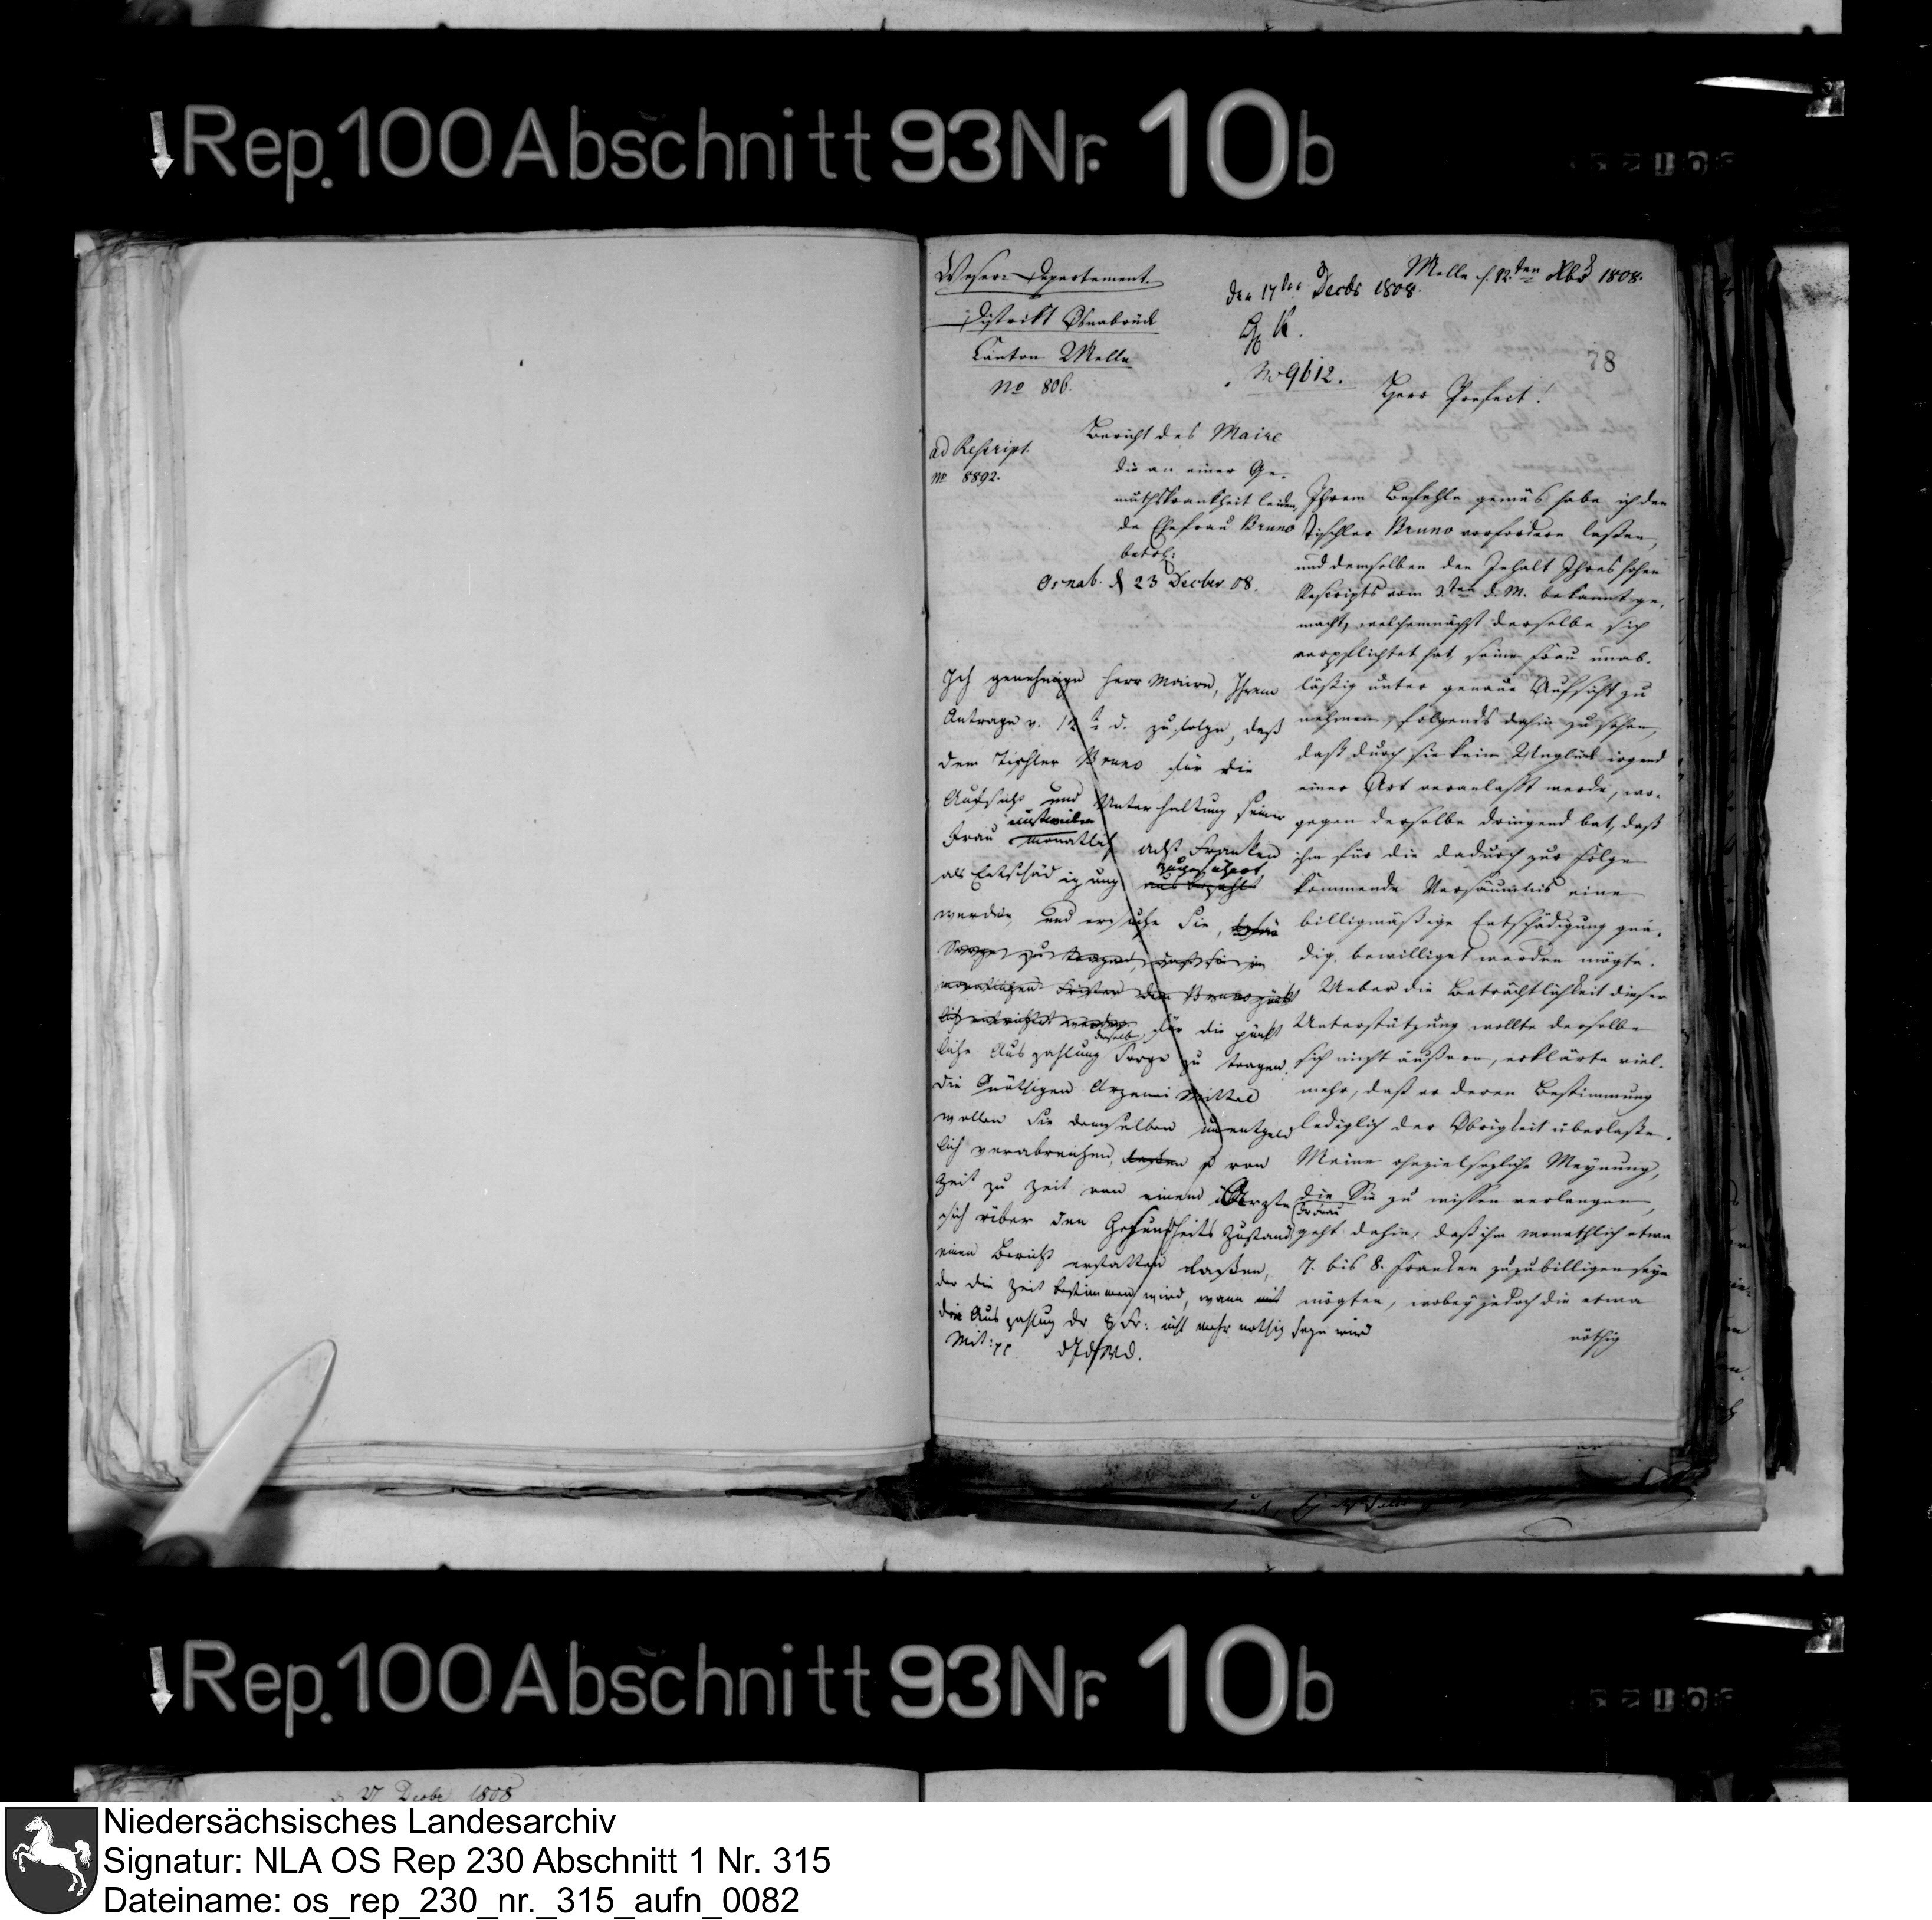 Rep. 100 Abschnitt 93 Nr. 10b
Weser-Departement
Distrikt Osnabrück
Canton Melle
No 806.
Melle d. 12.ten Xbr 1808.
den 17ten Decbr 1808.
No 9612.
78
Herr Praefect!
ad Rescript.
No 8892.
Bericht des Maire
die an einer Ge-
müthskrankheit leiden-
de Ehefrau Bruno
betr:
Osnab. d 23 Decber 08.
Ihrem Befehle gemäs habe ich den
Tischler Bruno vorfordern laßen,
und demselben den Inhalt Ihres hohen
Rescripts vom 3ten d. M. bekannt ge-
macht, welchemnächst derselbe sich
verpflichtet hat, seine Frau unab-
läßig unter genaue Aufsicht zu
nehmen, folgends dahin zu sehen,
daß durch sie kein Unglück irgend
einer Art veranlaßt werde, wo-
gegen derselbe dringend bat, daß
ihm für die dadurch zur Folge
kommende Versäumnis eine
billigmäßige Entschädigung gnä-
dig bewilliget werden mögte.
Ueber die Beträchtlichkeit dieser
Unterstützung wollte derselbe
sich nicht äußern, erklärte viel-
mehr, daß er deren Bestimmung
lediglich der Obrigkeit überlaße.
Meine Meynung,
die Sie zu wissen verlangen,
geht dahin, daß ihm monathlich etwa
7. bis 8. Franken zuzubilligen seyn
mögten, wobey jedoch die etwa
nöthig
Ich genehmige Herr Maire, Ihrem
Antrage v. 12 d. zufolge, daß
dem Tischler Bruno für die
Aufsicht und Unterhaltung seiner
einstweilen
Frau monatlich acht Franken
zugesichert
als Entschädigung ausbezahlt
werden, und ersuche Sie,
Sorge zu tragen, daß sie in
monatlichen Fristen dem Bruno pünkt
lich entrichtet werden für die pünkt
derselben
liche Auszahlung Sorge zu tragen.
Die nöthigen Arzenei Mittel
wollen Sie demselben unentgeld
lich verabreichen, lassen von
Zeit zu Zeit von einem Arzte
der Frau
sich über den Gesundheits Zustand
einen Bericht erstatten laßen,
der die Zeit bestimmen wird, wann mit
die Auszahlung der 8 Fr: nicht mehr nöthig seyn wird
Mit:
Rep. 100 Abschnitt 93 Nr. 10b
27 Decbr 1808
Niedersächsisches Landesarchiv
Signatur: NLA OS Rep 230 Abschnitt 1 Nr. 315
Dateiname: os_rep_230_nr._315_aufn_0082